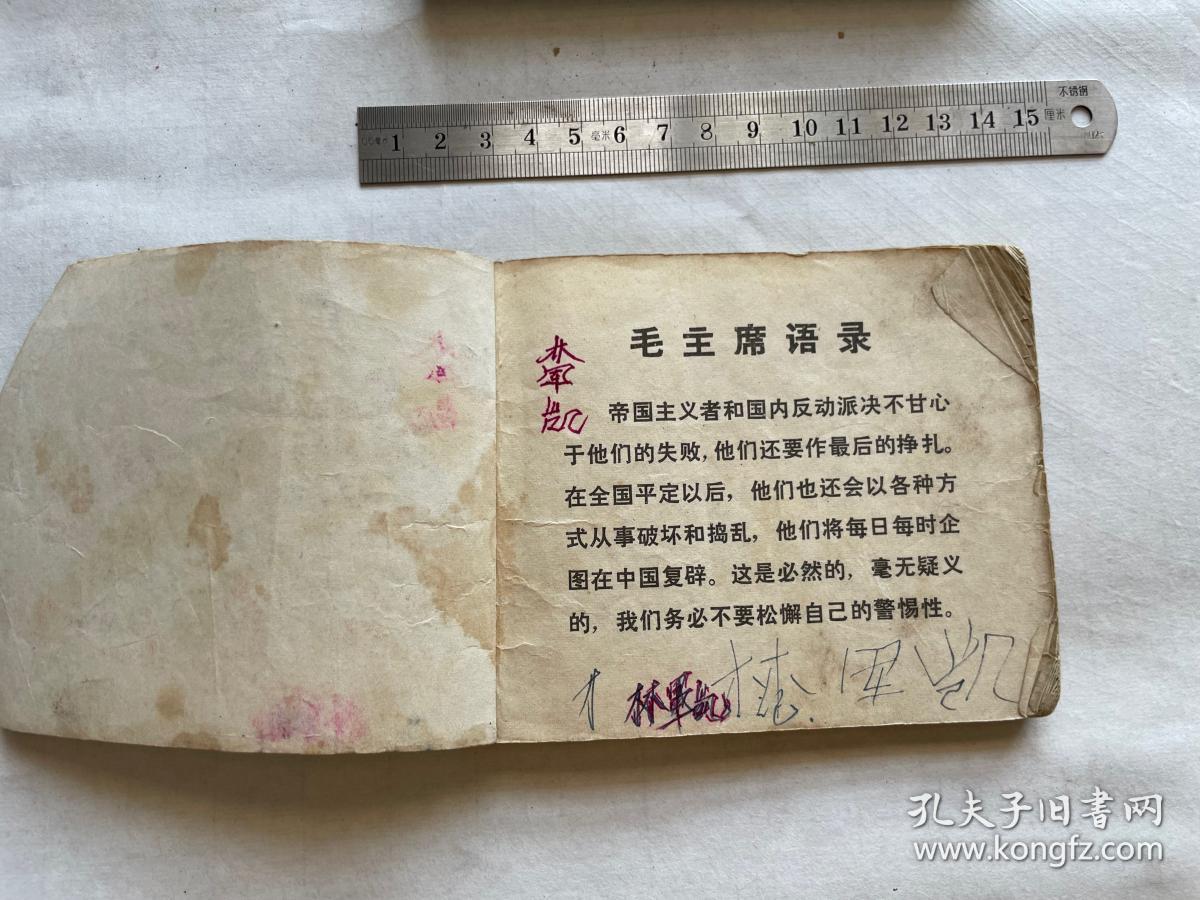 不锈钢
1 2 3 4 5 毫米 6 7 8 9 10 11 12 13 14 15 厘米
毛主席语录
帝国主义者和国内反动派决不甘心
于他们的失败，他们还要作最后的挣扎。
在全国平定以后，他们也还会以各种方
式从事破坏和捣乱，他们将每日每时企
图在中国复辟。这是必然的，毫无疑义
的，我们务必不要松懈自己的警惕性。
林軍凯
孔夫子旧书网
www.kongfz.com